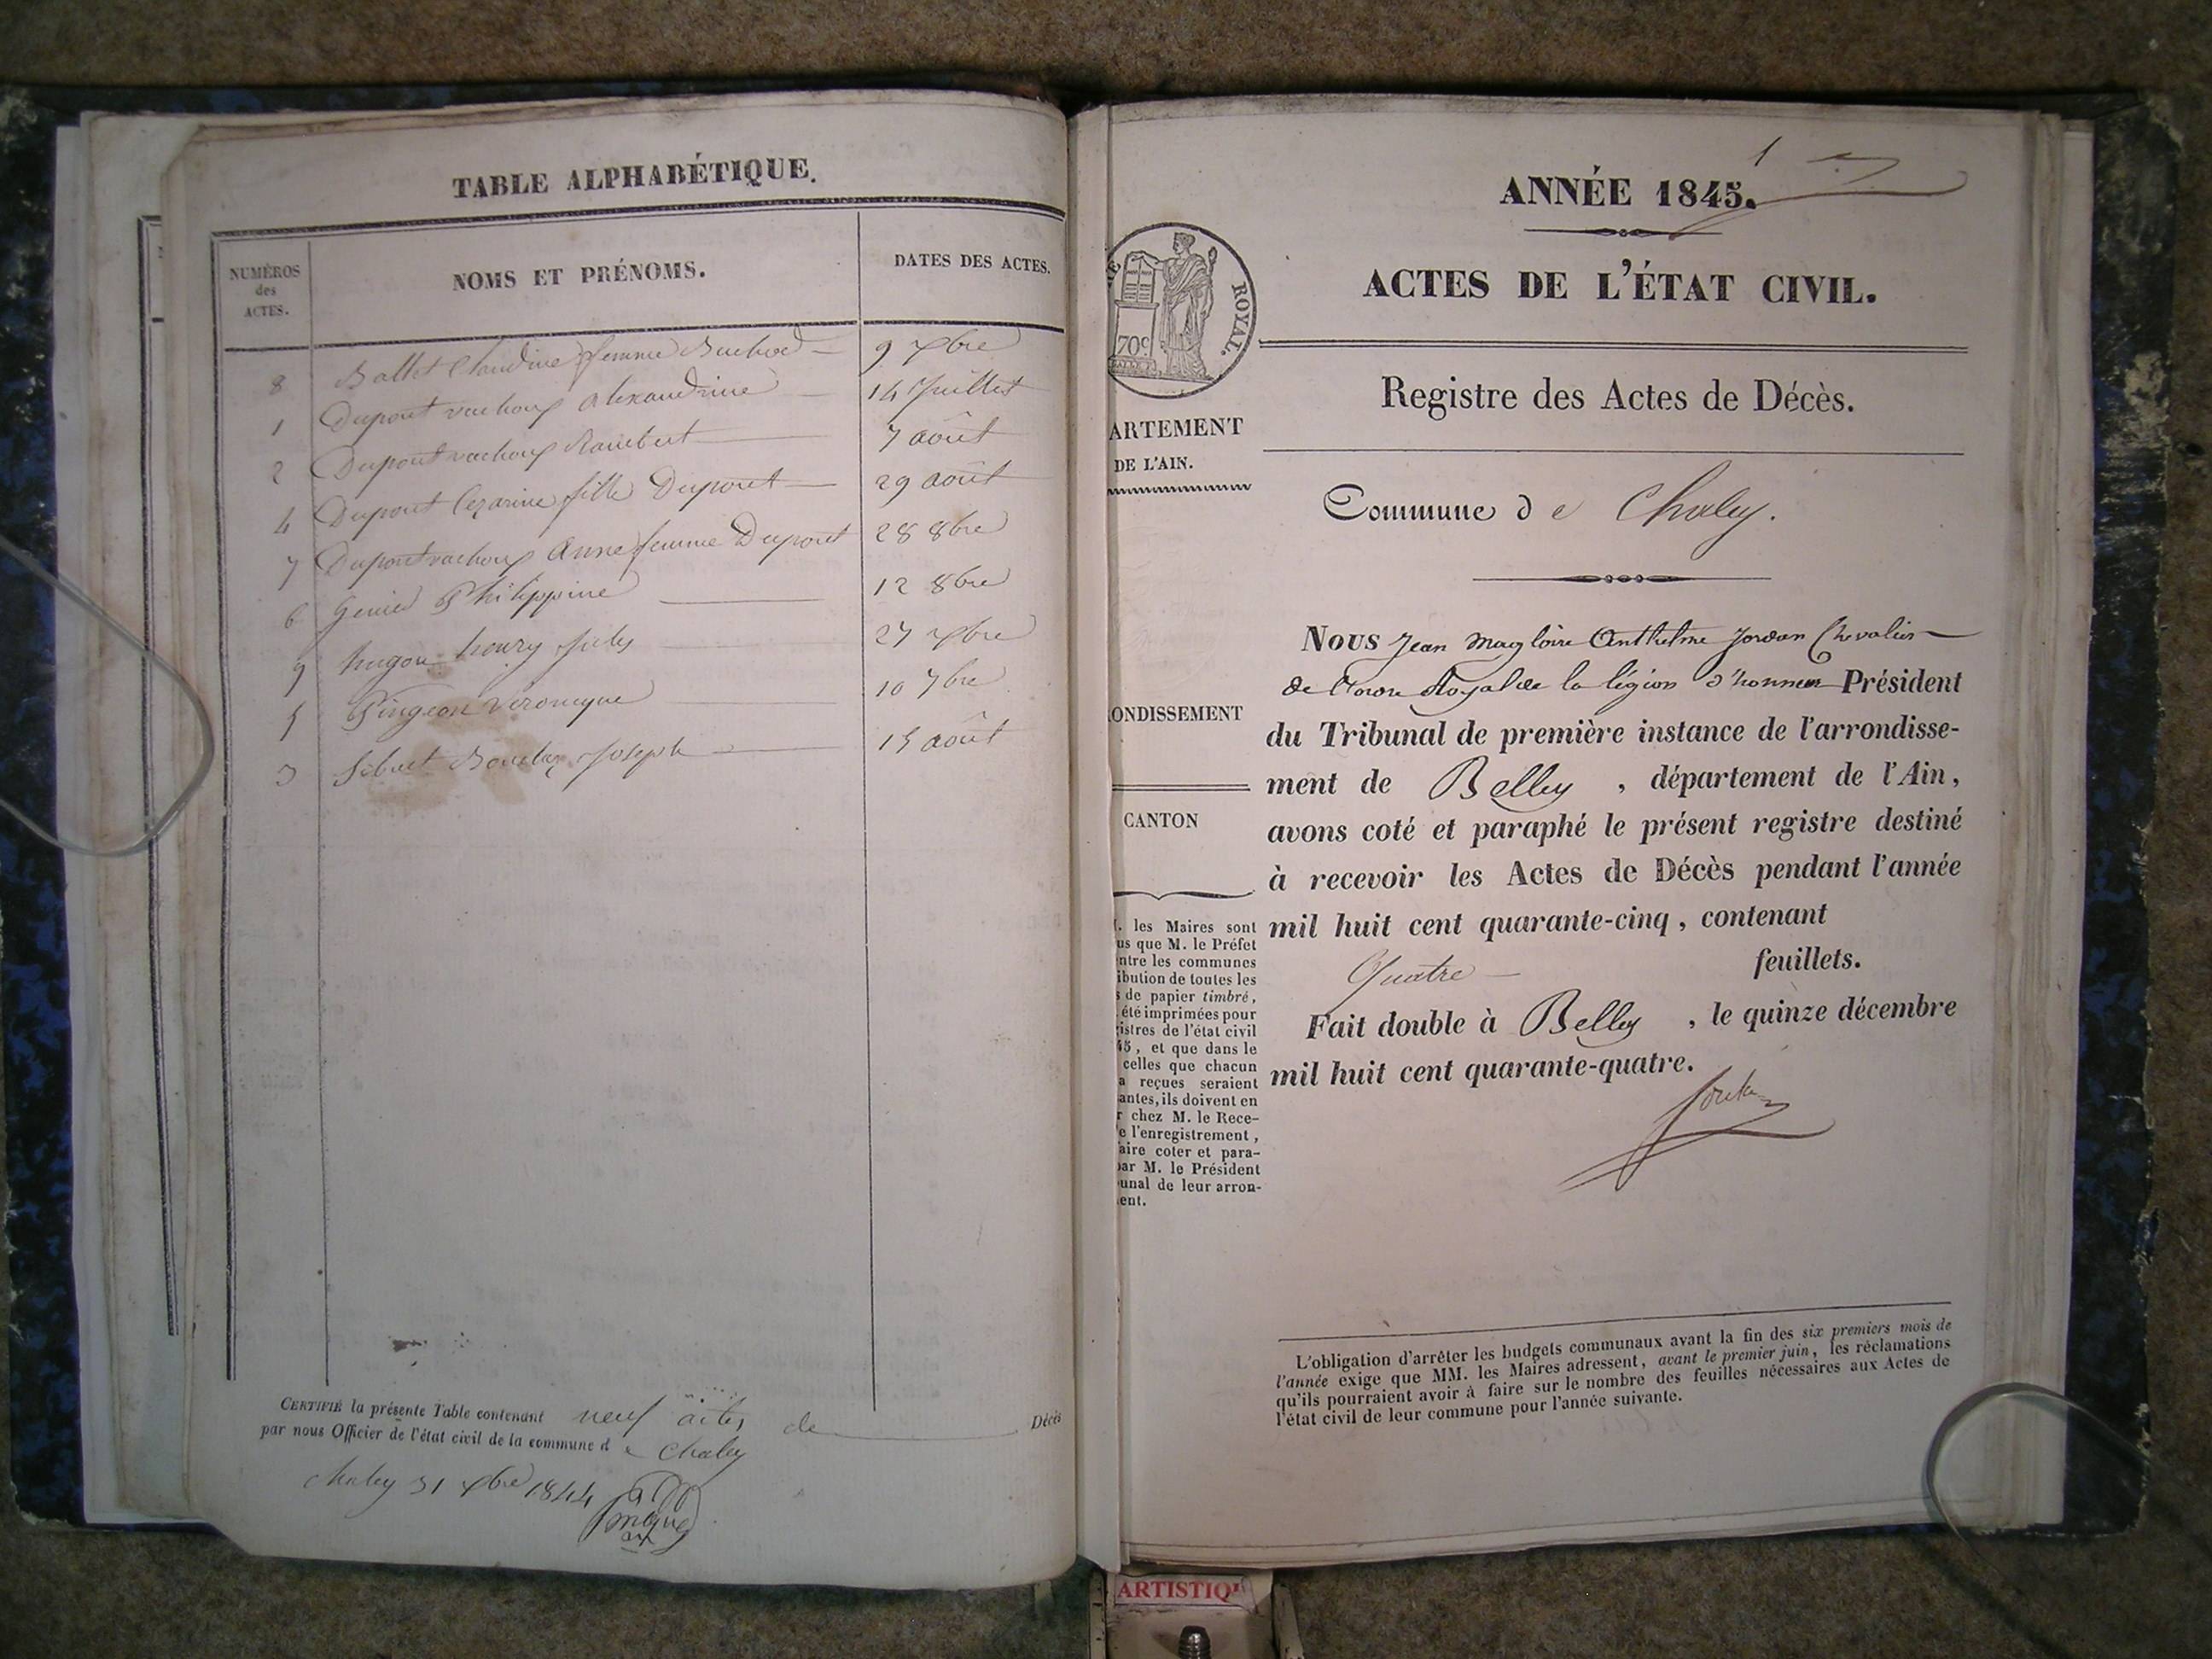 TABLE ALPHABÉTIQUE.
NUMÉROS
des
ACTES.
NOMS ET PRÉNOMS.
DATES DES ACTES.
8 Ballet Claudine femme Buchod 9 xbre
1 Dupont vachoux Alexandrine 14 Juillet
2 Dupont vachoux Rambert 7 août
4 Dupont Cezarine fille Dupont 29 août
7 Dupont vachoux Anne femme Dupont 28 8bre
6 Philippine 12 8bre
9 hugon henry jules 27 xbre
5 Pingeon Veronique 10 7bre
3 Sibuet Joseph 15 août
CERTIFIÉ la présente Table contenant neuf actes de Décès
par nous Officier de l'état civil de la commune d e Chaley
Chaley 31 xbre 1844
1
ANNÉE 1845.
ACTES DE L'ÉTAT CIVIL.
ROYAL.
70c
Registre des Actes de Décès.
ARTEMENT
DE L'AIN.
Commune d e Chaley.
Nous Jean Magloire Anthelme Jordan Chevalier
de l'ordre Royal de la légion d'honneur Président
du Tribunal de première instance de l'arrondisse-
ment de Belley, département de l'Ain,
avons coté et paraphé le présent registre destiné
à recevoir les Actes de Décès pendant l'année
mil huit cent quarante-cinq, contenant
Quatre feuillets.
Fait double à Belley, le quinze décembre
mil huit cent quarante-quatre.
Jordan
ONDISSEMENT
CANTON
. les Maires sont
us que M. le Préfet
ntre les communes
ibution de toutes les
s de papier timbré,
été imprimées pour
istres de l'état civil
45, et que dans le
celles que chacun
a reçues seraient
antes, ils doivent en
r chez M. le Rece-
e l'enregistrement,
aire coter et para-
ar M. le Président
unal de leur arron-
ent.
L'obligation d'arrêter les budgets communaux avant la fin des six premiers mois de
l'année exige que MM. les Maires adressent, avant le premier juin, les réclamations
qu'ils pourraient avoir à faire sur le nombre des feuilles nécessaires aux Actes de
l'état civil de leur commune pour l'année suivante.
ARTISTIQ